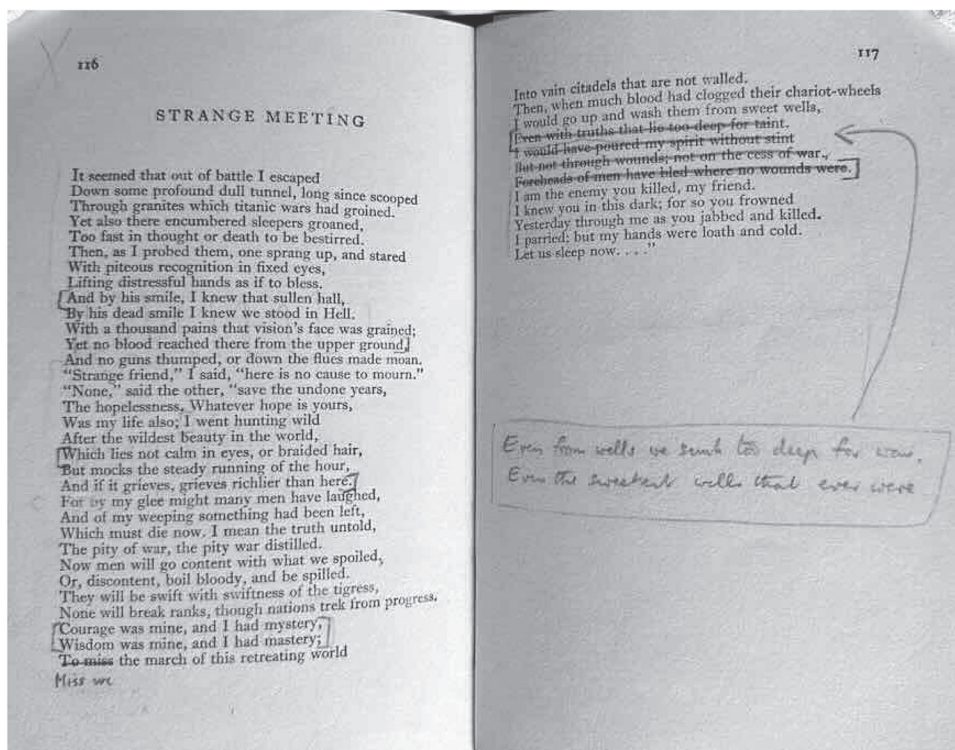 116
STRANGE MEETING
It seemed that out of battle I escaped
Down some profound dull tunnel, long since scooped
Through granites which titanic wars had groined.
Yet also there encumbered sleepers groaned,
Too fast in thought or death to be bestirred.
Then, as I probed them, one sprang up, and stared
With piteous recognition in fixed eyes,
Lifting distressful hands as if to bless.
And by his smile, I knew that sullen hall,
By his dead smile I knew we stood in Hell.
With a thousand pains that vision's face was grained;
Yet no blood reached there from the upper ground,
And no guns thumped, or down the flues made moan.
"Strange friend," I said, "here is no cause to mourn."
"None," said the other, "save the undone years,
The hopelessness. Whatever hope is yours,
Was my life also; I went hunting wild
After the wildest beauty in the world,
Which lies not calm in eyes, or braided hair,
But mocks the steady running of the hour,
And if it grieves, grieves richlier than here.
For by my glee might many men have laughed,
And of my weeping something had been left,
Which must die now. I mean the truth untold,
The pity of war, the pity war distilled.
Now men will go content with what we spoiled,
Or, discontent, boil bloody, and be spilled.
They will be swift with swiftness of the tigress,
None will break ranks, though nations trek from progress.
Courage was mine, and I had mystery,
Wisdom was mine, and I had mastery;
To miss the march of this retreating world
Miss we
117
Into vain citadels that are not walled.
Then, when much blood had clogged their chariot-wheels
I would go up and wash them from sweet wells,
Even with truths that lie too deep for taint.
I would have poured my spirit without stint
But not through wounds; not on the cess of war.
Foreheads of men have bled where no wounds were.
I am the enemy you killed, my friend.
I knew you in this dark; for so you frowned
Yesterday through me as you jabbed and killed.
I parried; but my hands were loath and cold.
Let us sleep now. . . ."
Even from wells we sunk too deep for war,
Even the sweetest wells that ever were